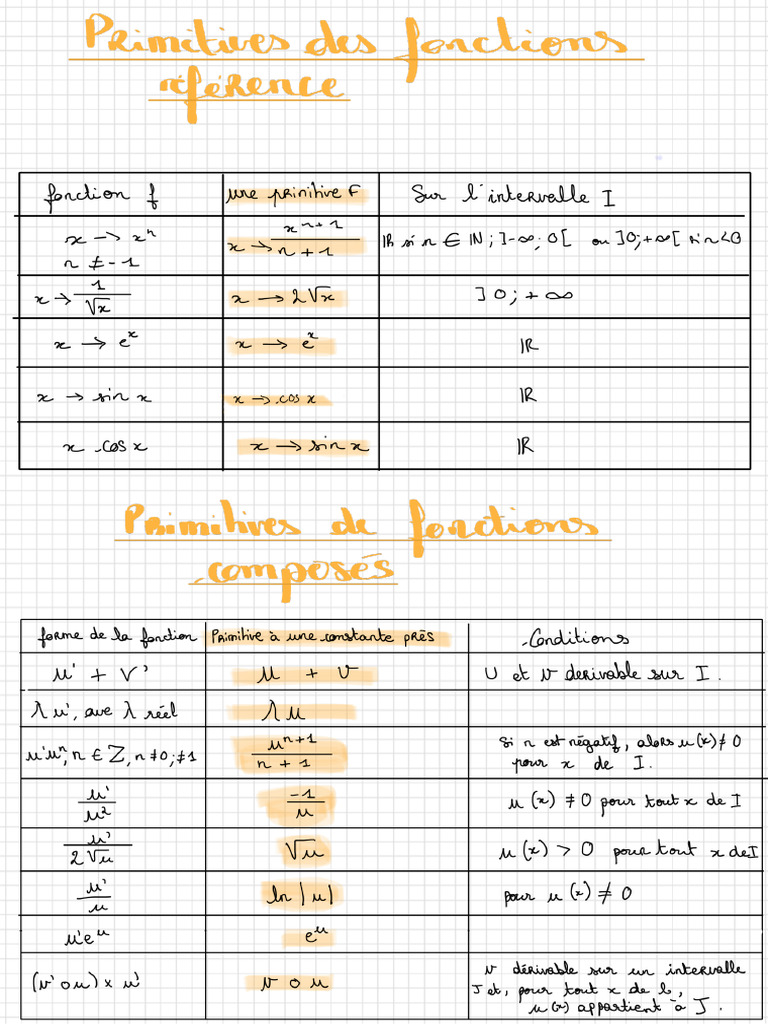 Primitives des fonctions
référence
fonction f | une primitive F | Sur l'intervalle I
x → xⁿ n ≠ -1 | x → xⁿ⁺¹/n+1 | IR si n ∈ IN ; ]-∞ ; 0[ ou ]0 ; +∞[ si n<0
x → 1/√x | x → 2√x | ]0 ; + ∞
x → eˣ | x → eˣ | IR
x → sin x | x → cos x | IR
x cos x | x → sin x | IR
Primitives de fonctions
composés
forme de la fonction | Primitive à une constante près | Conditions
u' + v' | u + v | U et v derivable sur I.
λ u', ave λ réel | λ u
u'uⁿ, n ∈ ℤ, n ≠ 0 ; ≠ 1 | uⁿ⁺¹/n + 1 | Si n est négatif, alors u(x) ≠ 0
pour x de I.
u'/u² | -1/u | u(x) ≠ 0 pour tout x de I
u'/2√u | √u | u(x) > 0 pour tout x de I
u'/u | ln |u| | pour u(x) ≠ 0
u'eᵘ | eᵘ
(v' o u) × u' | v o u | v dérivable sur un intervalle
J et, pour tout x de b,
u(x) appartient à J.